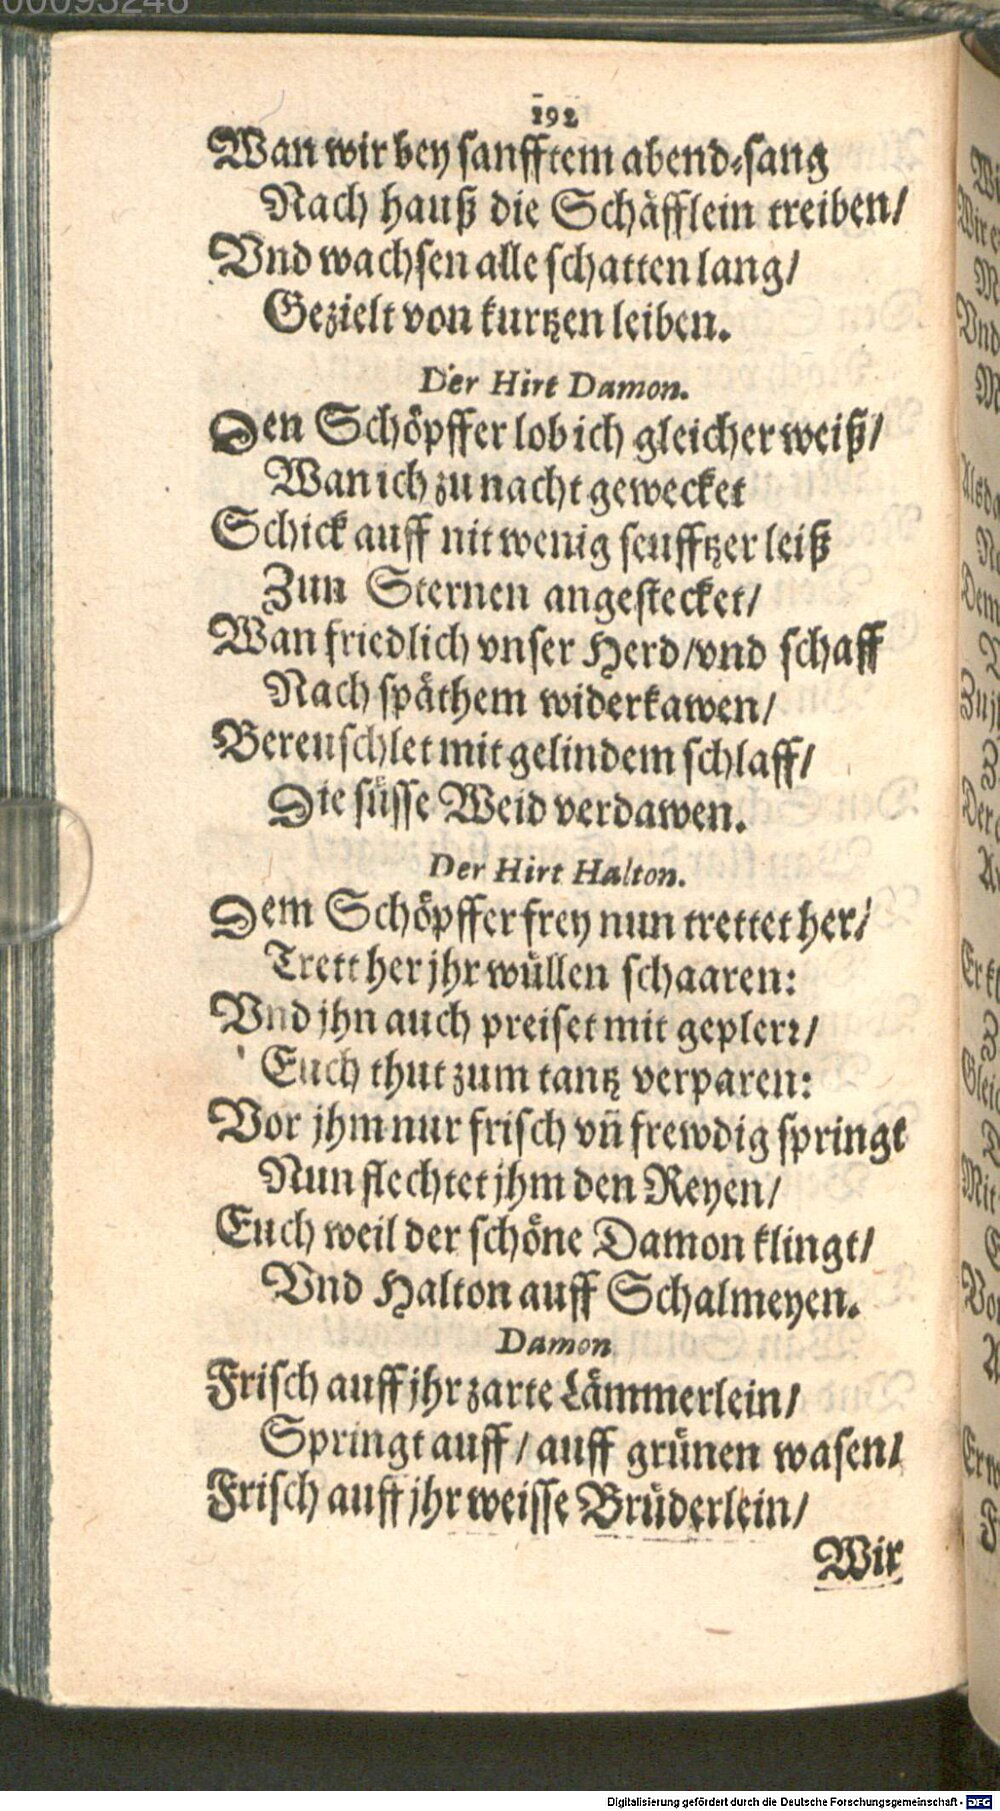 192
Wan wir bey sanfftem abend-sang
Nach hauß die Schäfflein treiben/
Vnd wachsen alle schatten lang/
Gezielt von kurtzen leiben.
Der Hirt Damon.
Den Schöpffer lob ich gleicher weiß/
Wan ich zu nacht gewecket
Schick auff nit wenig seufftzer leiß
Zun Sternen angestecket/
Wan friedlich vnser Herd/vnd schaff
Nach späthem widerkawen/
Bereuschlet mit gelindem schlaff/
Die süsse Weid verdawen.
Der Hirt Halton.
Dem Schöpffer frey nun trettet her/
Trett her jhr wüllen schaaren:
Vnd jhn auch preiset mit geplerr/
Euch thut zum tantz verparen:
Vor jhm nur frisch vñ frewdig springt
Nun flechtet jhm den Reyen/
Euch weil der schöne Damon klingt/
Vnd Halton auff Schalmeyen.
Damon
Frisch auff jhr zarte Lämmerlein/
Springt auff/ auff grünen wasen/
Frisch auff jhr weisse Brüderlein/
Wir
Digitalisierung gefördert durch die Deutsche Forschungsgemeinschaft - DFG